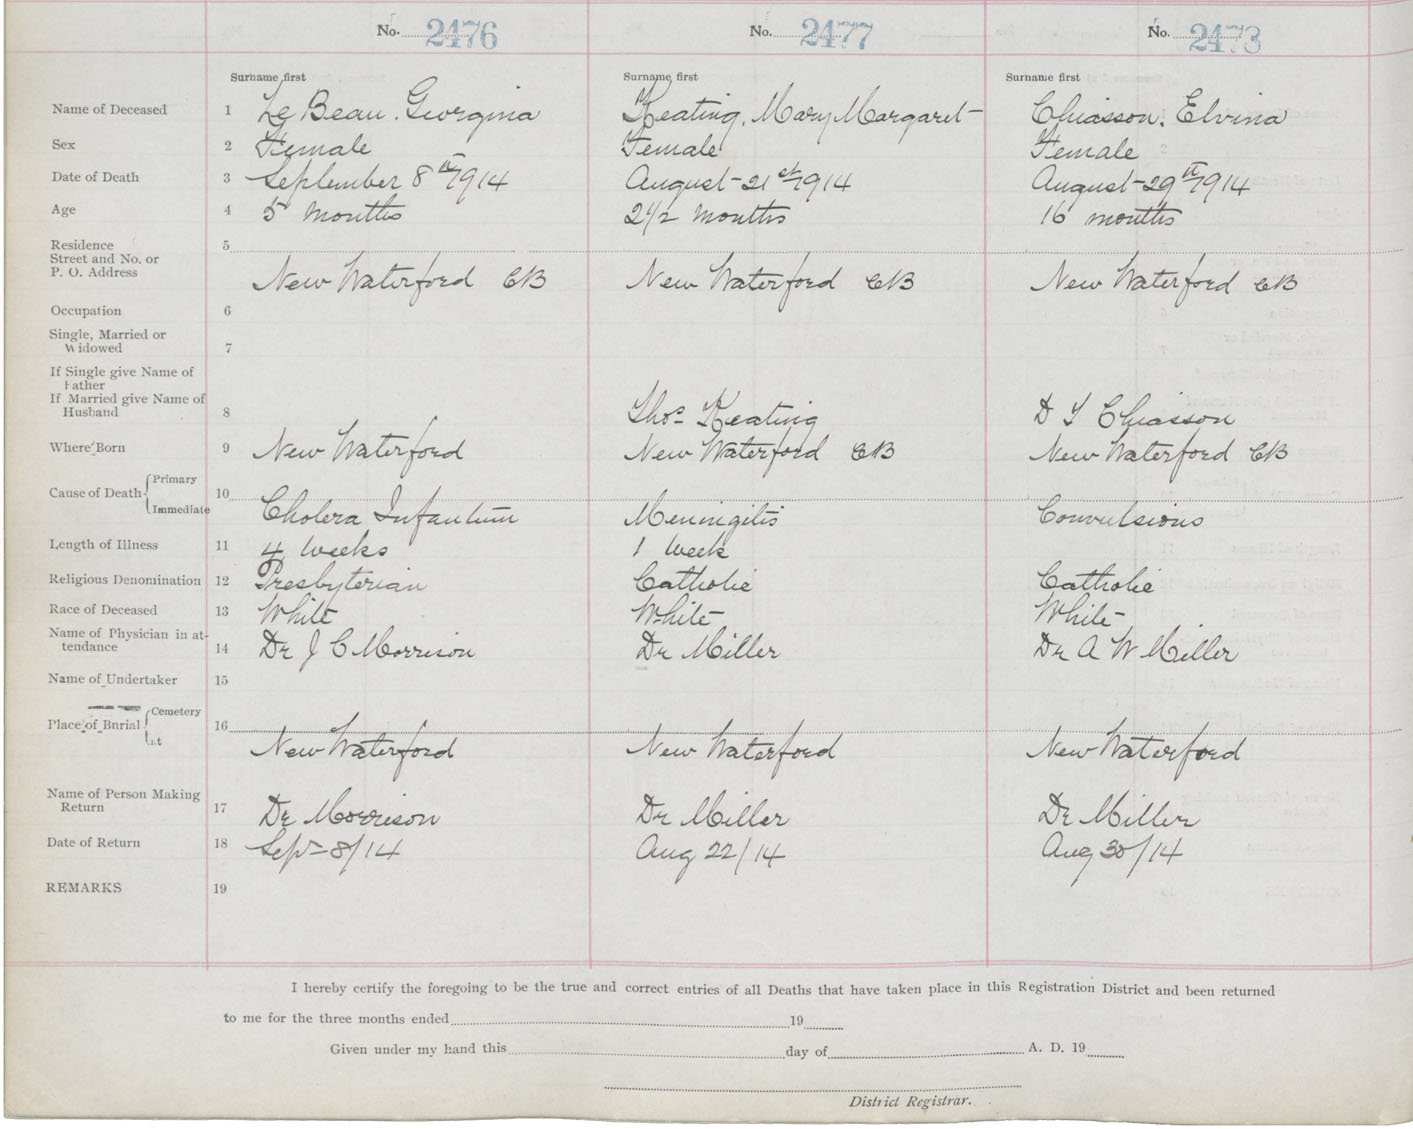 No. 2476 No. 2477 No. 2473
Surname first Surname first Surname first
Name of Deceased 1 Le Beau. Georgina Keating. Mary Margaret Chiasson. Elvina
Sex 2 Female Female Female
Date of Death 3 September 8th 1914 August 21st 1914 August 29th 1914
Age 4 5 months 2 1/2 months 16 months
Residence 5
Street and No. or
P. O. Address New Waterford CB New Waterford CB New Waterford CB
Occupation 6
Single, Married or
Widowed 7
If Single give Name of
Father
If Married give Name of
Husband 8 Thos Keating D J Chiasson
Where Born 9 New Waterford New Waterford CB New Waterford CB
Cause of Death { Primary
10
Immediate Cholera Infantum Meningitis Convulsions
Length of Illness 11 4 weeks 1 week
Religious Denomination 12 Presbyterian Catholic Catholic
Race of Deceased 13 White White White
Name of Physician in at-
tendance 14 Dr J C Morrison Dr Miller Dr A W Miller
Name of Undertaker 15
Place of Bnrial { Cemetery
16
at New Waterford New Waterford New Waterford
Name of Person Making
Return 17 Dr Morrison Dr Miller Dr Miller
Date of Return 18 Sept 8/14 Aug 22/14 Aug 30/14
REMARKS 19
I hereby certify the foregoing to be the true and correct entries of all Deaths that have taken place in this Registration District and been returned
to me for the three months ended 19
Given under my hand this day of A. D. 19
District Registrar.